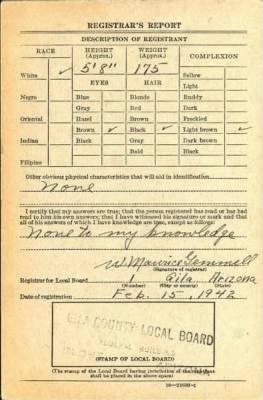 REGISTRAR'S REPORT
DESCRIPTION OF REGISTRANT
RACE HEIGHT (Approx.) WEIGHT (Approx.) COMPLEXION
White ✓ 5'8" 175 Sallow
EYES HAIR Light
Negro Blue Blonde Ruddy
Gray Red Dark
Oriental Hazel Brown Freckled
Brown ✓ Black ✓ Light brown ✓
Indian Black Gray Dark brown
Bald Black
Filipino
Other obvious physical characteristics that will aid in identification
None
I certify that my answers are true; that the person registered has read or has had
read to him his own answers; that I have witnessed his signature or mark and that
all of his answers of which I have knowledge are true, except as follows:
None to my knowledge
W Maurice Gemmell
(Signature of registrar)
Registrar for Local Board 1 Gila Arizona
(Number) (City or county) (State)
Date of registration Feb. 15, 1942
GILA COUNTY LOCAL BOARD
FEDERAL BUILDING
(STAMP OF LOCAL BOARD)
(The stamp of the Local Board having jurisdiction of the registrant
shall be placed in the above space)